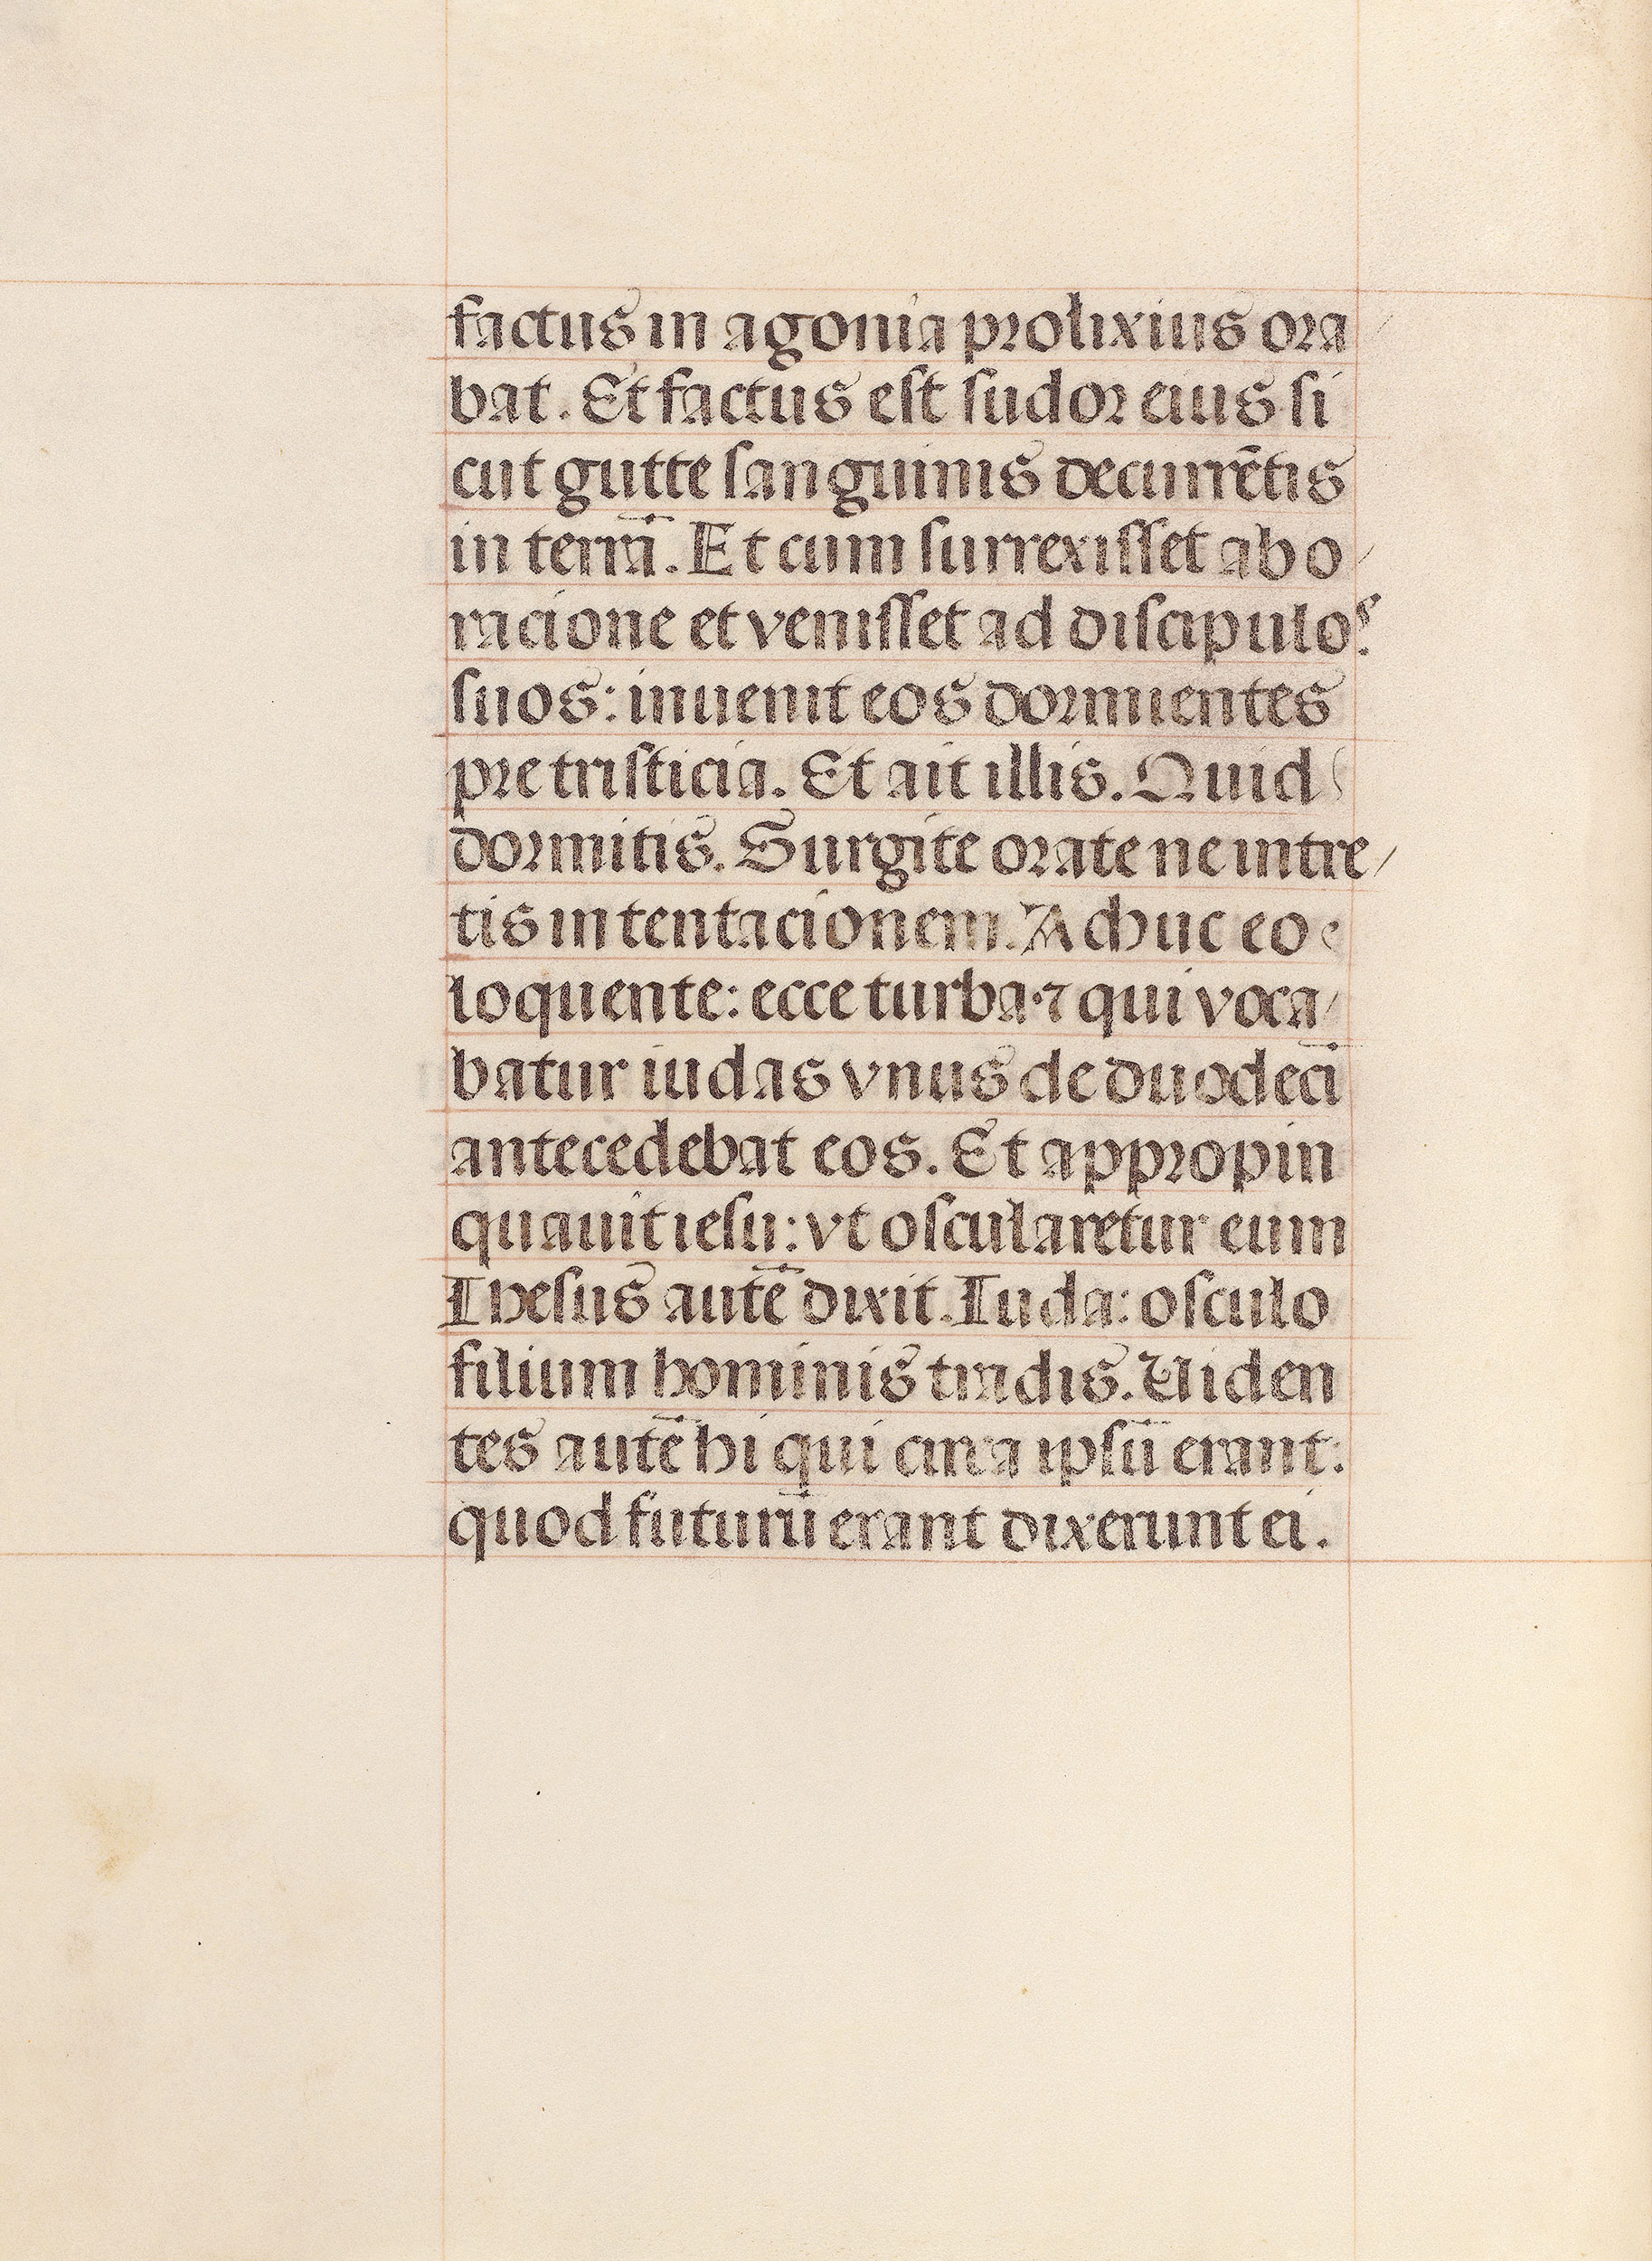 factus in agonia prolixius ora/
bat. Et factus est sudor eius si
cut gutte sanguinis decurrētis
in terrā. Et cum surrexisset ab o/
racione et venisset ad discipulos:
suos: inuenit eos dormientes
pre tristicia. Et ait illis. Quid
dormitis. Surgite orate ne intre/
tis in tentacionem. Adhuc eo
loquente: ecce turba·⁊ qui voca/
batur iudas vnus de duodecī
antecedebat eos. Et appropin
quauit iesu: vt oscularetur eum
Ihesus autē dixit. Iuda: osculo
filium hominis tradis. Uiden
tes autē hi qui circa ipsū erant:
quod futurū erant dixerunt ei.